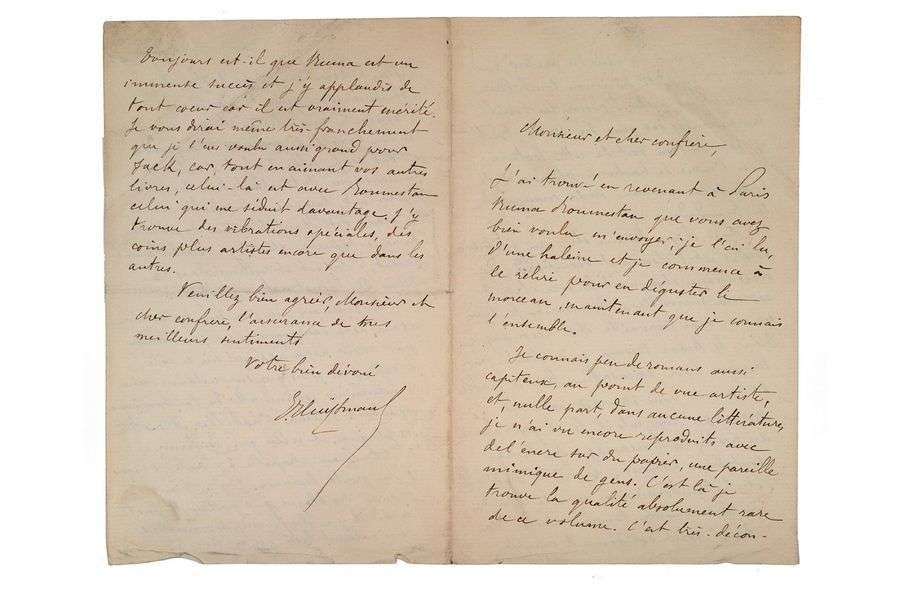 Monsieur et cher confrère,
J'ai trouvé en revenant à Paris
Numa Roumestan que vous avez
bien voulu m'envoyer, je l'ai lu,
d'une haleine et je commence à
le relire pour en déguster le
morceau, maintenant que je connais
l'ensemble.
Je connais peu de romans aussi
capiteux, au point de vue artiste,
et, nulle part, dans aucune littérature,
je n'ai vu encore reproduits avec
de l'encre sur du papier, une pareille
mimique de gens. C'est là je
trouve la qualité absolument rare
de ce volume. C'est très-décon-
Toujours est-il que Numa est un
immense succès et j'y applaudis de
tout coeur car il est vraiment mérité.
Je vous dirai même très-franchement
que je l'eus voulu aussi grand pour
Jack, car, tout en aimant vos autres
livres, celui-là est avec Roumestan
celui qui me séduit davantage. J'y
trouve des vibrations spéciales, des
coins plus artistes encore que dans les
autres.
Veuillez bien agréer, Monsieur et
cher confrère, l'assurance de mes
meilleurs sentiments
Votre bien dévoué
Huysmans